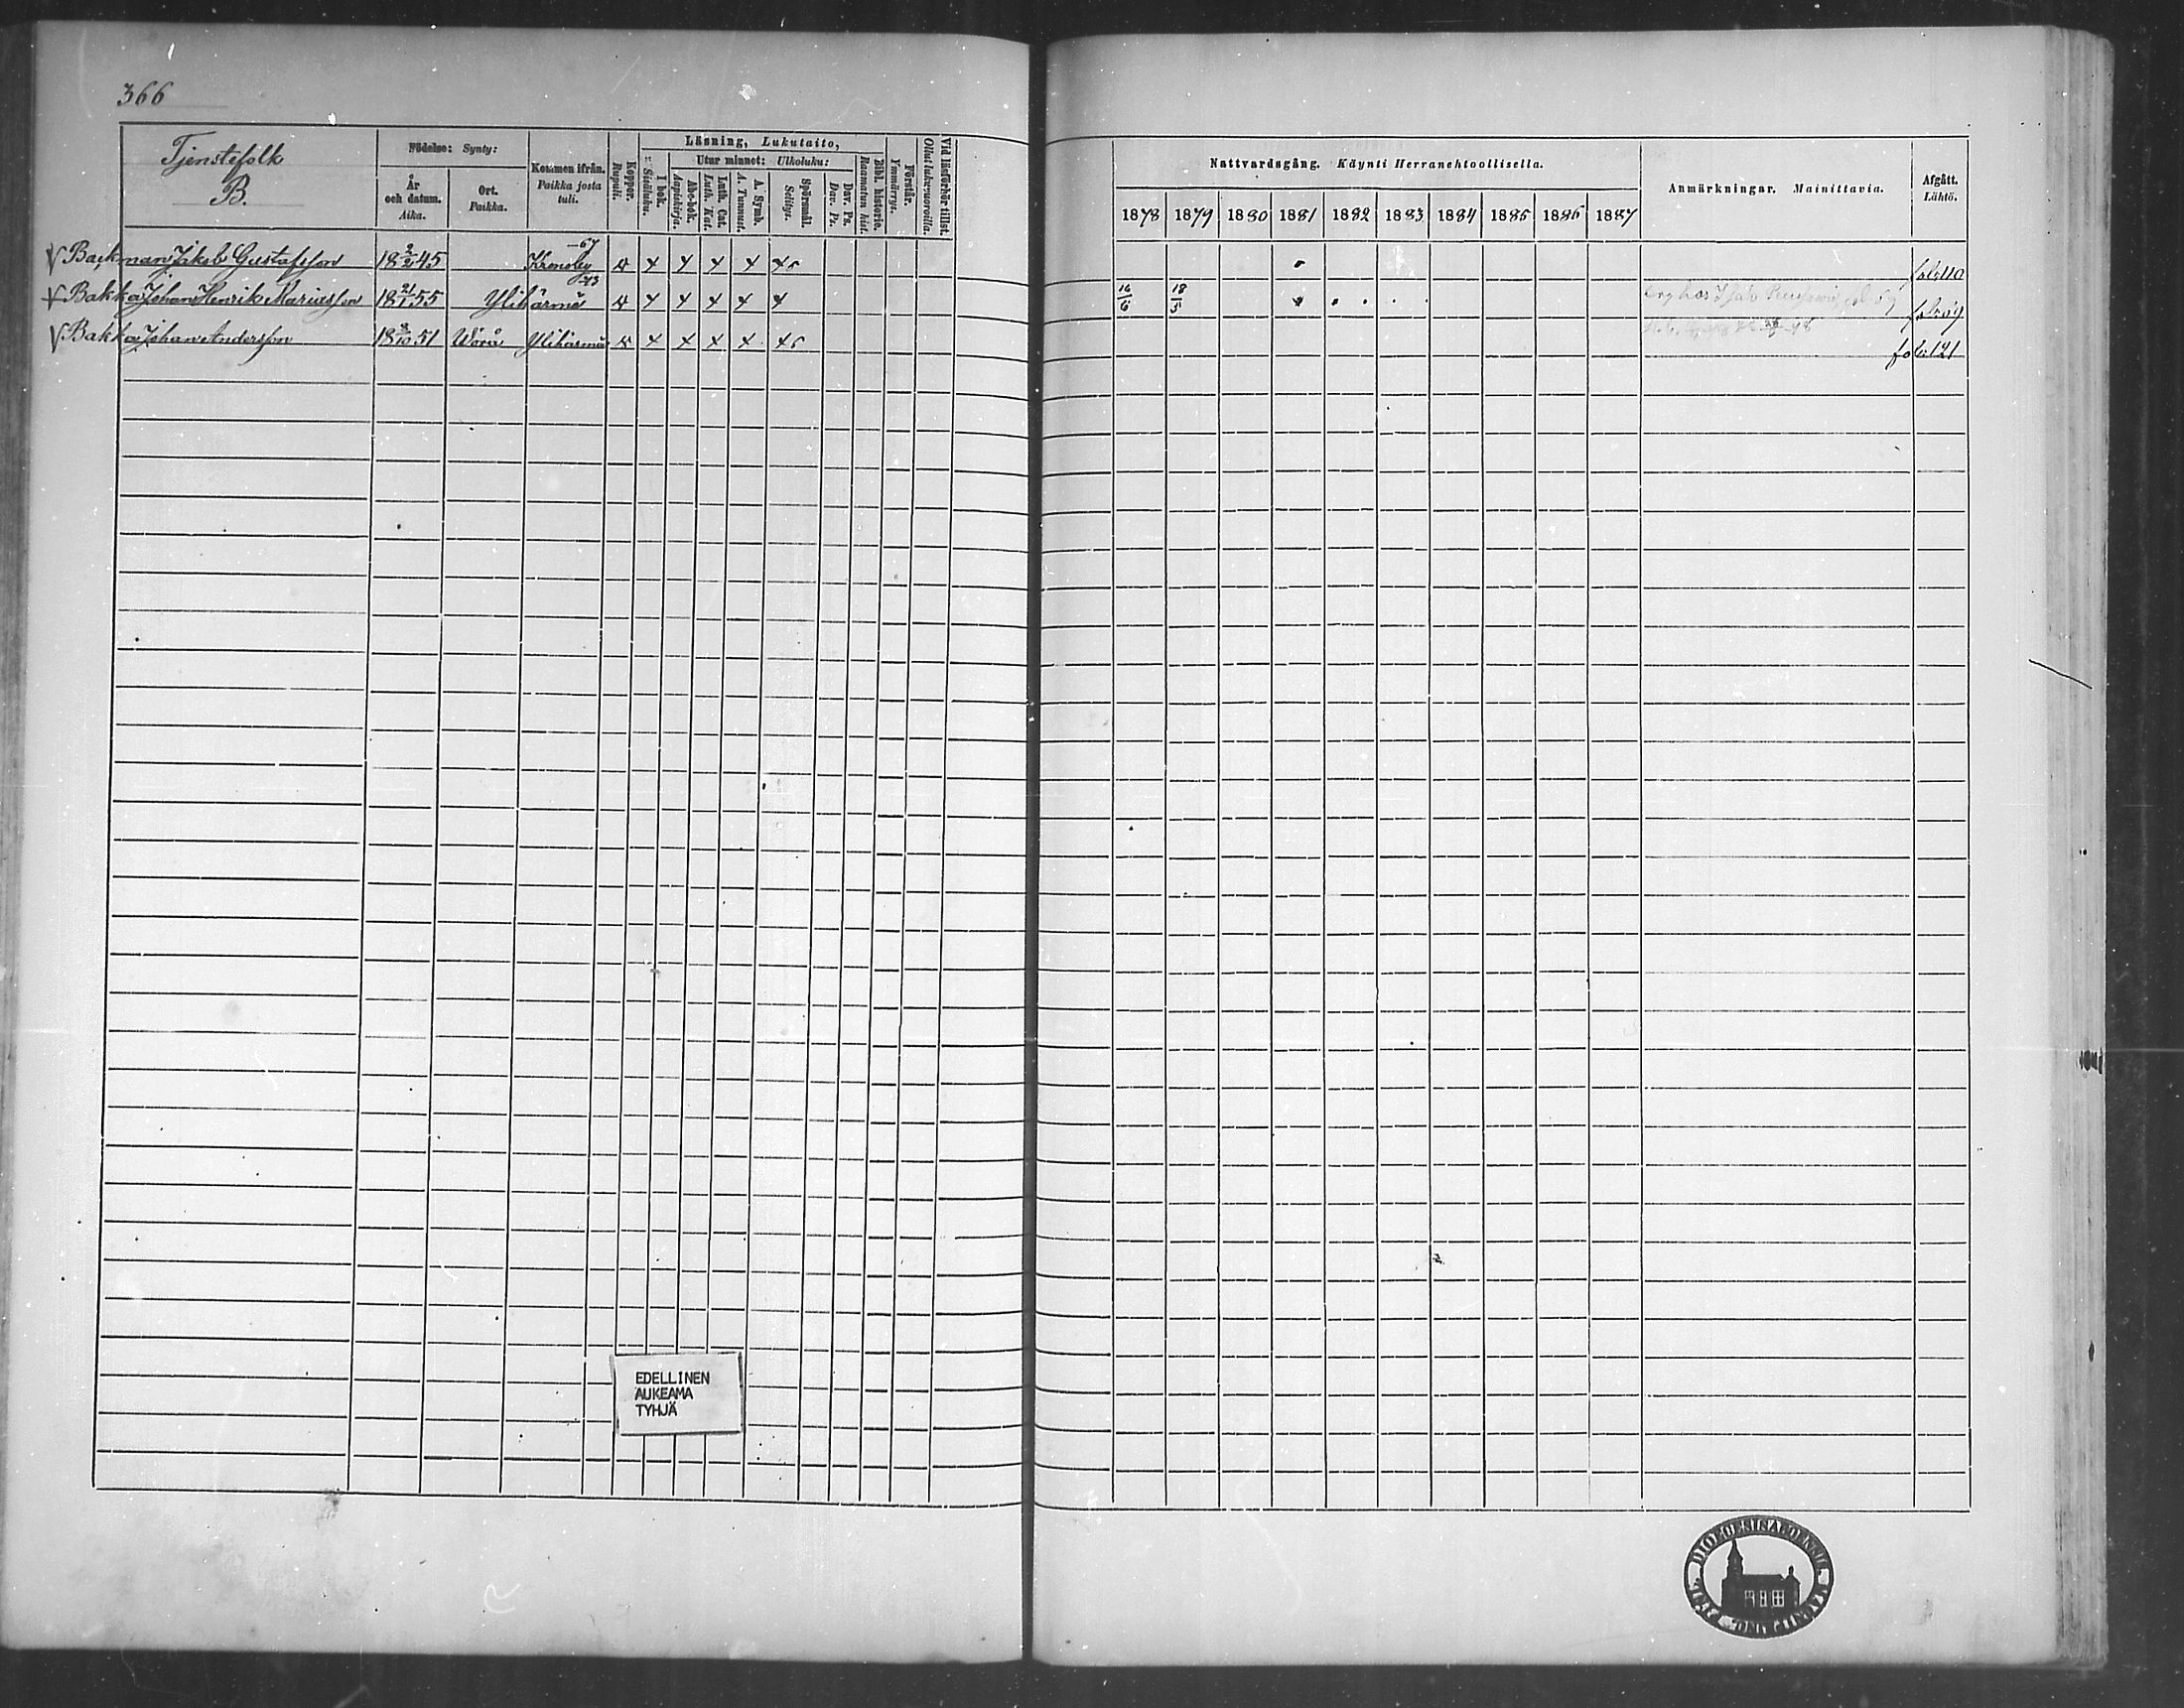 366
Tjenstefolk
B.
Födelse: Synty:
År och datum. Aika.
Ort. Paikka.
Kommen ifrån. Paikka josta tuli.
Koppor. Rupuli.
Läsning, Lukutaito,
I bok. Sisäluku.
Utur minnet: Ulkoluku:
Ab-c-bok. Aapiskirja.
Luth. Cat. Luth. Kat.
A. Symb. A. Tunnust.
Spörsmål. Selitys.
Dav. Ps. Dav. Ps.
Bibl. historie. Raamatun hist.
Förstår. Ymmärrys.
Vid läsförhör tillst. Ollut lukuvuoroilla.
Nattvardsgång. Käynti Herranehtoollisella.
1878 1879 1880 1881 1882 1883 1884 1885 1886 1887
Anmärkningar. Mainittavia.
Afgått. Lähtö.
Backman Jakob Gustafsson 18 45 Kronoby -67 fol: 110
Bakka Johan Henrik Mariasson 18 21/1 55 Ylihärmä -73 16/6 18/5
Bakka Johan Andersson 18 51 Wörå Ylihärmä fol: 121
EDELLINEN
AUKEAMA
TYHJÄ